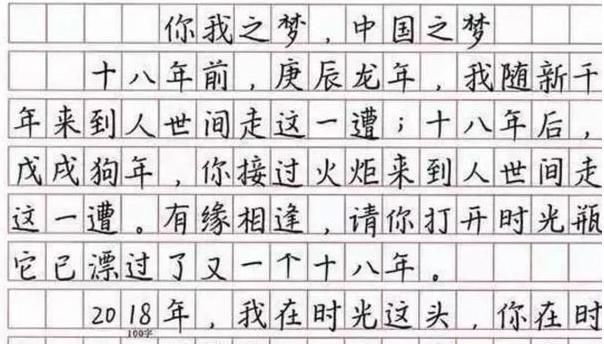 你我之梦，中国之梦
十八年前，庚辰龙年，我随新千
年来到人世间走这一遭；十八年后，
戊戌狗年，你接过火炬来到人世间走
这一遭。有缘相逢，请你打开时光瓶
它已漂过了又一个十八年。
2018年，我在时光这头，你在时
100字